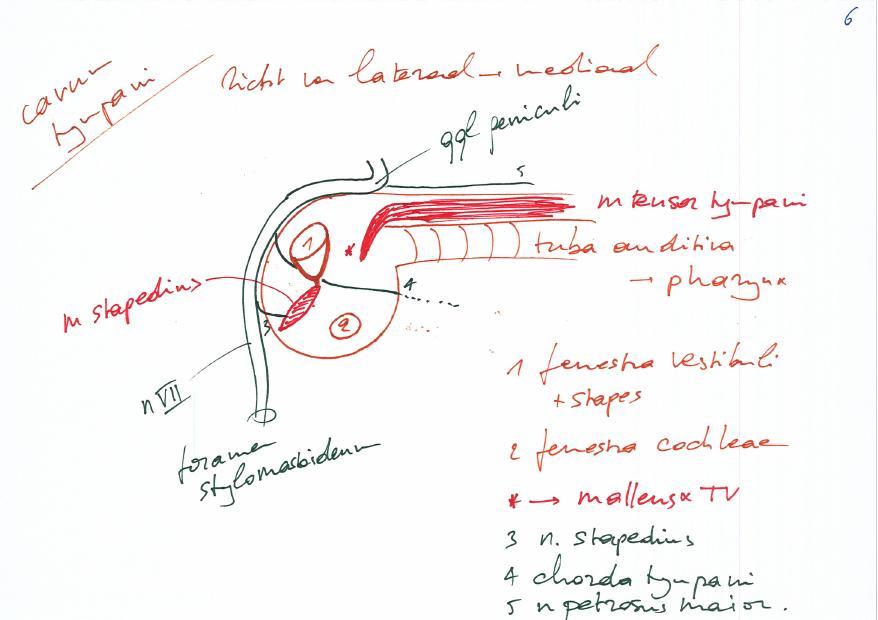 6
cavum
tympani
zicht van lateraal → mediaal
ggl geniculi
5
m tensor tympani
1
*
tuba auditiva
→ pharynx
4
m stapedius
3
2
n VII
foramen
stylomastoideum
1 fenestra vestibuli
+ stapes
2 fenestra cochleae
* → malleus
3 n. stapedius
4 chorda tympani
5 n petrosus maior.